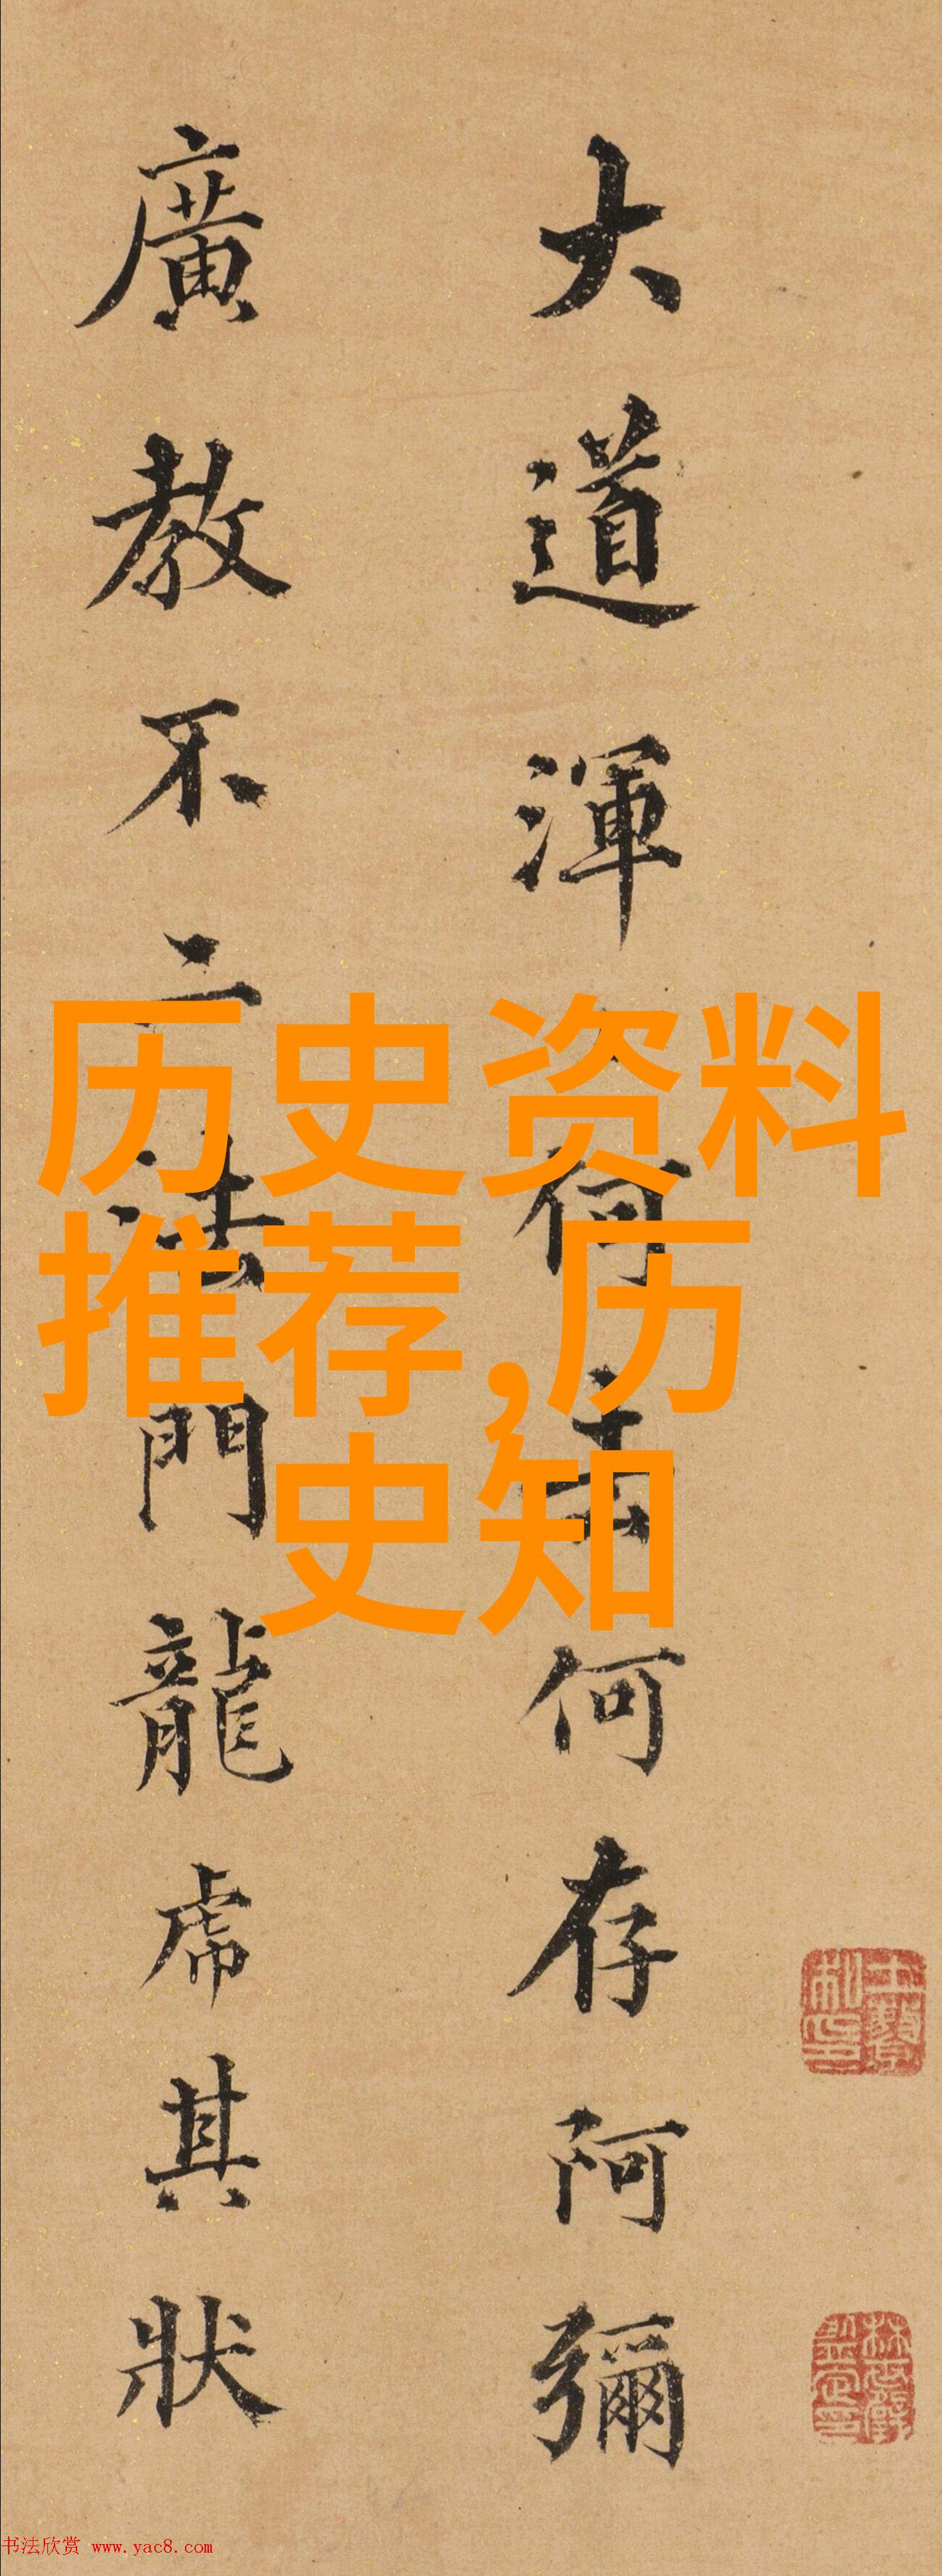 大道渾何去何存阿彌
廣教不二法門龍虎其狀
历史资料
推荐,历
史知
书法欣赏 www.yac8.com